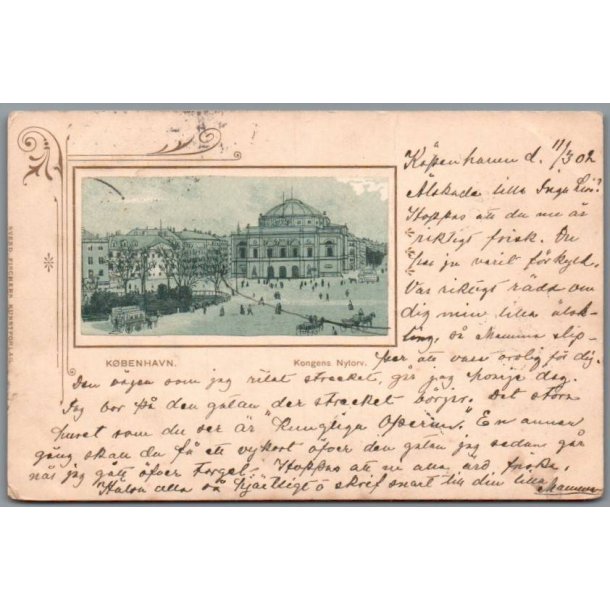 Köpenhamn d. 11/3 02
Älskade lilla Inga Liv!
Hoppas att du nu är
riktigt frisk. Du
har ju varit förkyld.
Var riktigt rädd om
dig min lilla älsk-
ling, så Mamma slip-
per att vara orolig för dig.
SVEND D. KUNSTFORLAG.
KØBENHAVN.
Kongens Nytorv.
Den vägen som jag ritat strecket, går jag hvarje dag.
Jag bor på den gatan der strecket börjar. Det stora
huset som du ser är "Kungliga Operan". En annan
gång skall du få ett vykort öfver den gatan jag sedan går
när jag gått öfver torget. Hoppas att ni alla äro friska.
Hälsa alla så hjärtligt o skrif snart till din lilla
Mamma